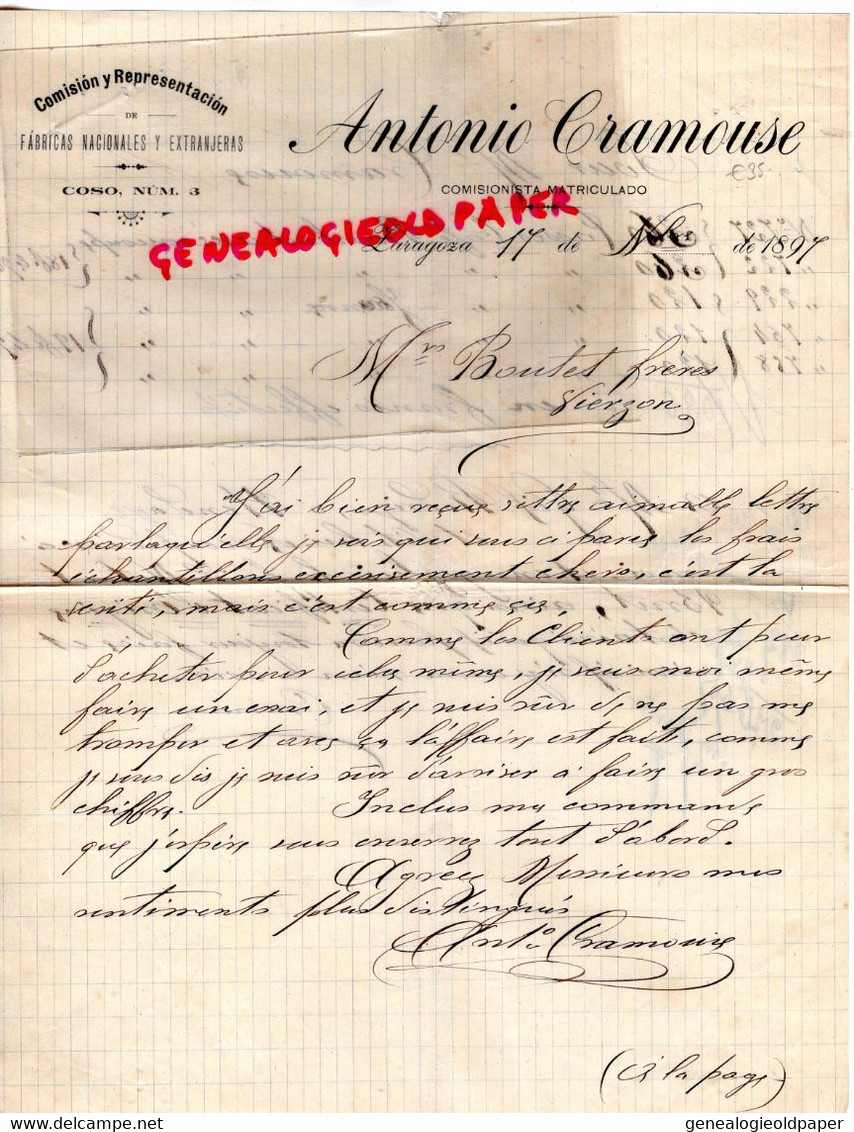 Comisión y Representación
DE
FÁBRICAS NACIONALES Y EXTRANJERAS
COSO, NÚM. 3
Antonio Cramouse
€35-
COMISIONISTA MATRICULADO
GENEALOGIEOLD PAPER
Zaragoza 17 de de 1897
Mrs Boutet frères
Vierzon
J'ai bien reçue vottre aimable lettre
parlaqu'elle je vois qui vous ci pares les frais
échantillons excisisement chers, c'est la
verité, mais c'est comme ça,
Comme les Clients ont peur
d'acheter pour eles même, je vais moi même
faire un essai, et je suis sûr de ne pas me
tromper et avec ça l'affaire est fait, comme
je vous dis je suis sûr d'arriver à faire un gros
chiffre. Inclus ma commande
que j'espère vous enverrez tout d'abord.
Agreez Messieurs mes
sentiments plus distingués
Anto Cramouse
(à la page)
genealogieoldpaper